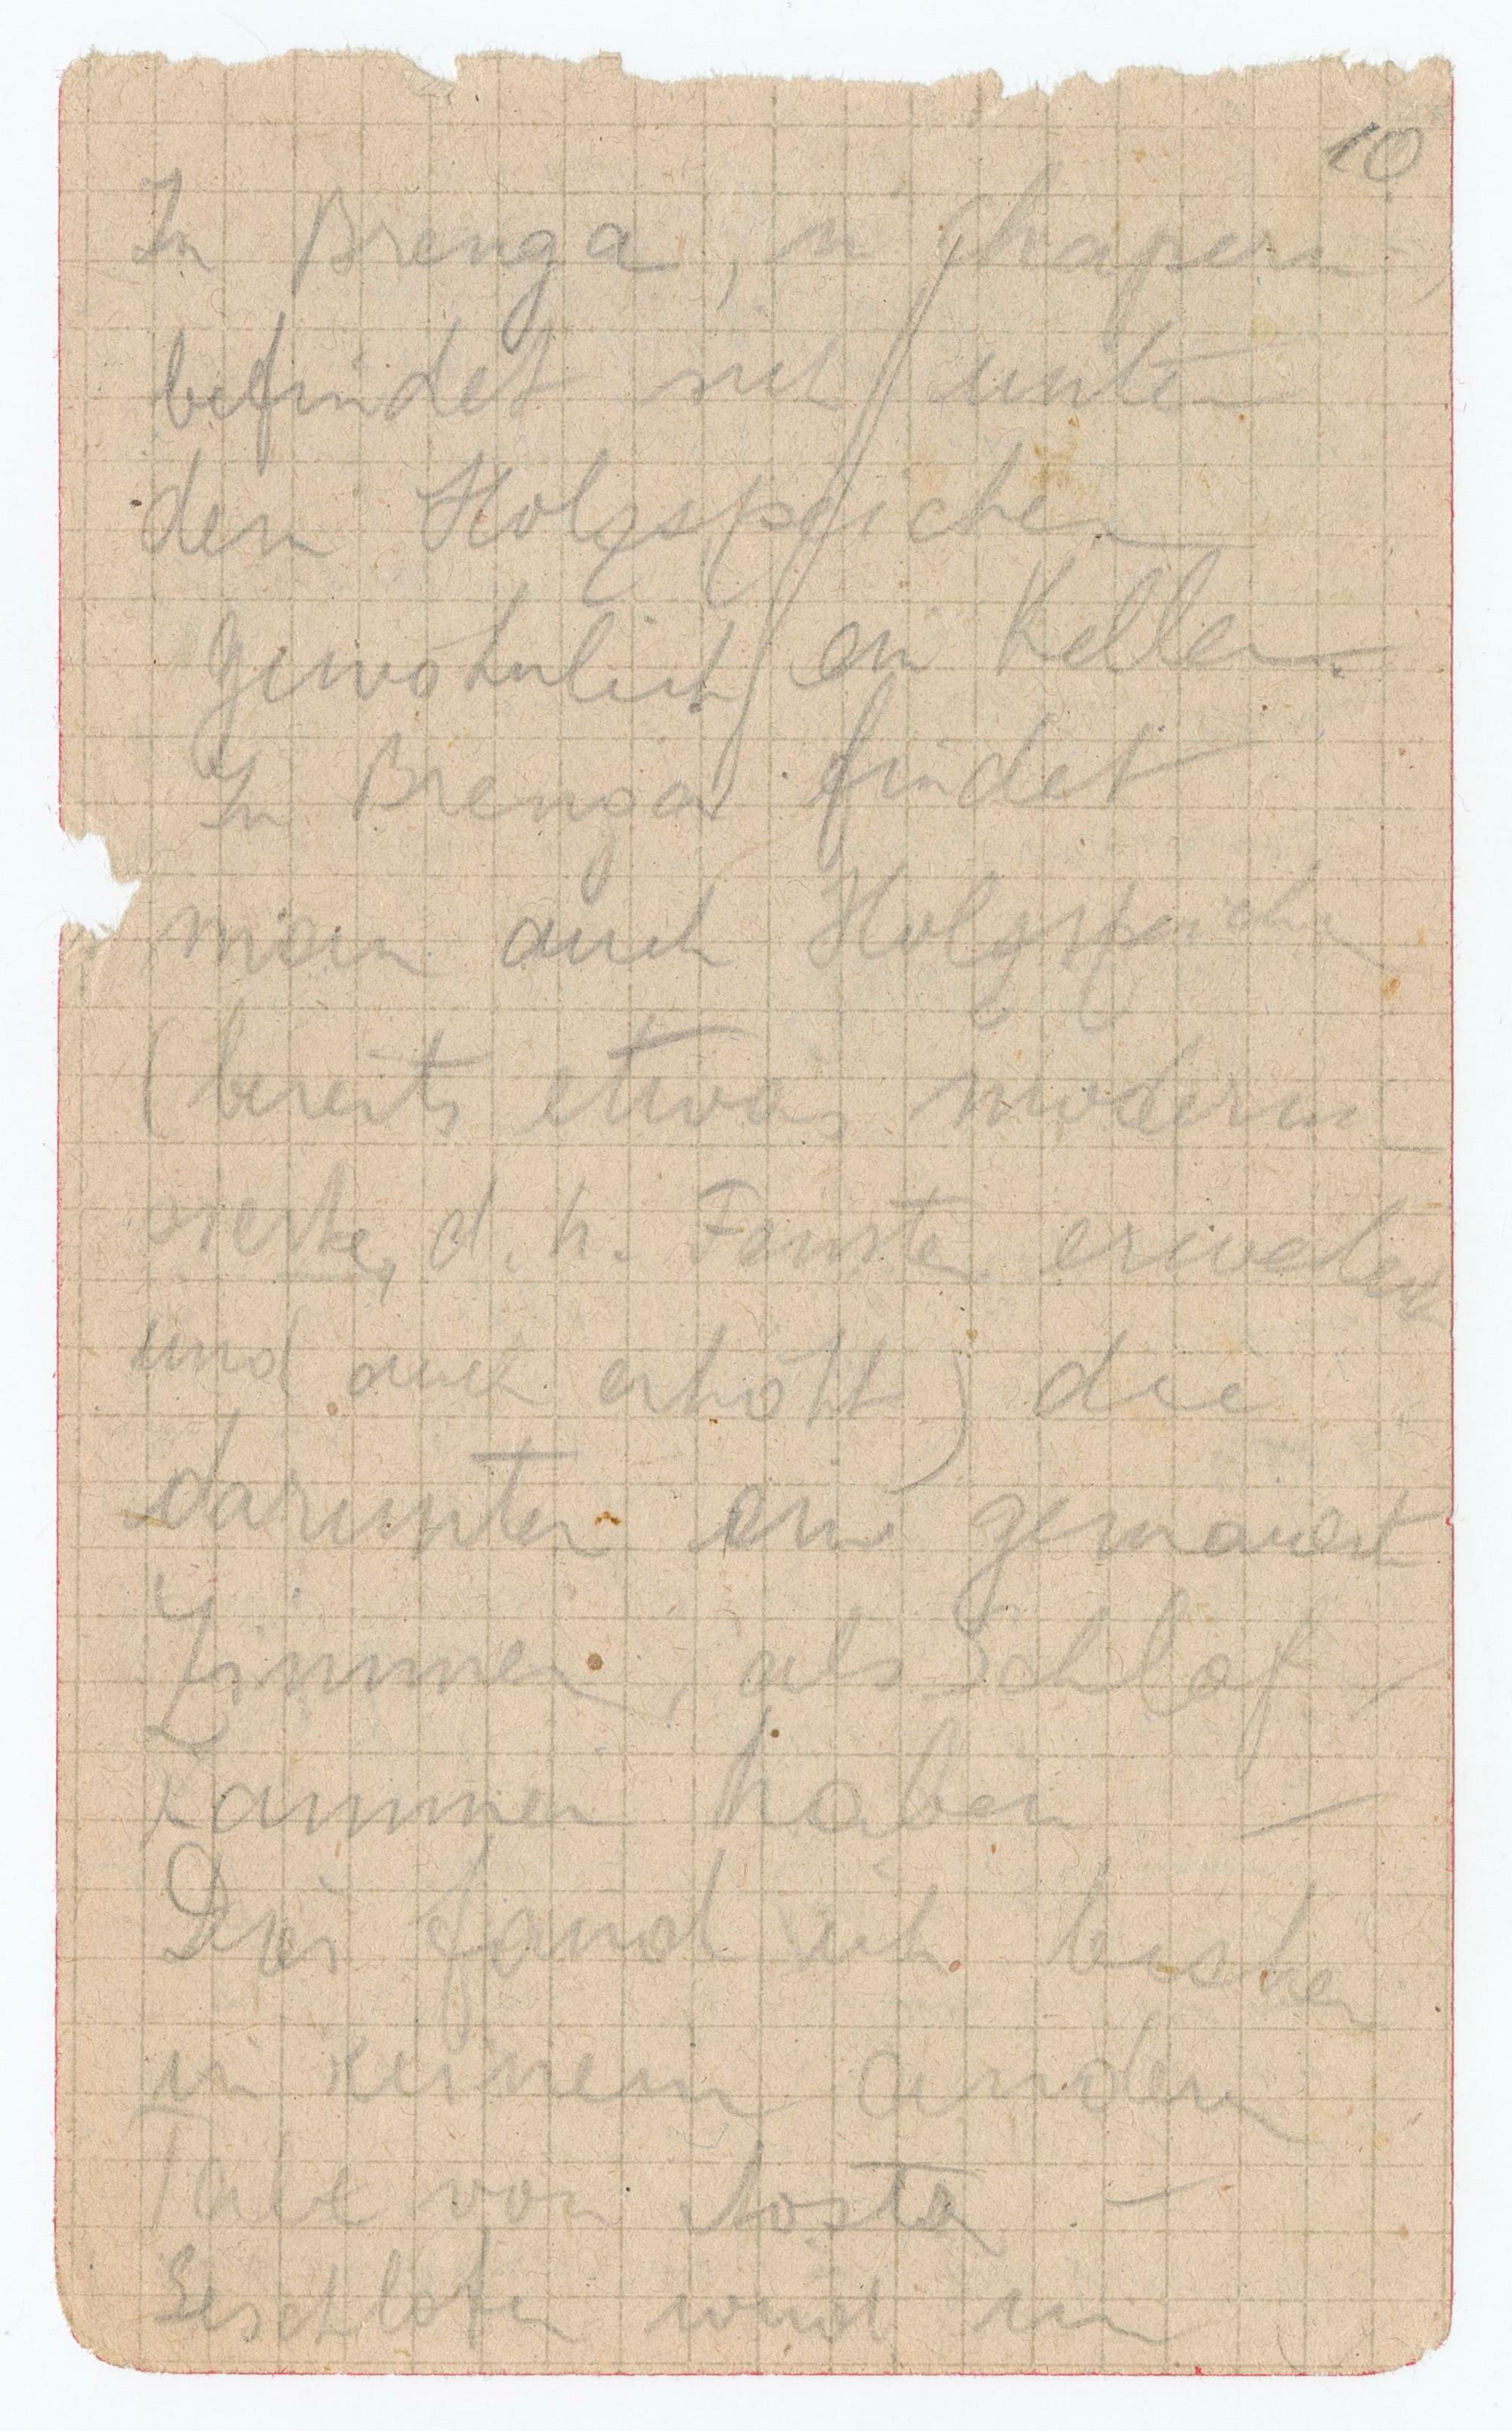 10
In Brenga, in
befindet sich unter
dem Holzspeicher
gewöhnlich ein Keller.
In Brenga findet
man auch Holzspeicher
(bereits etwas moderni-
sierte, d. h. Fenster erweitert
und auch erhöht) die
darunter ein gemauert
Zimmer, als Schlaf-
Kammer haben –
Dies fand ich bisher
in keinem andern
Tale von Aosta –
Geschlafen wird im